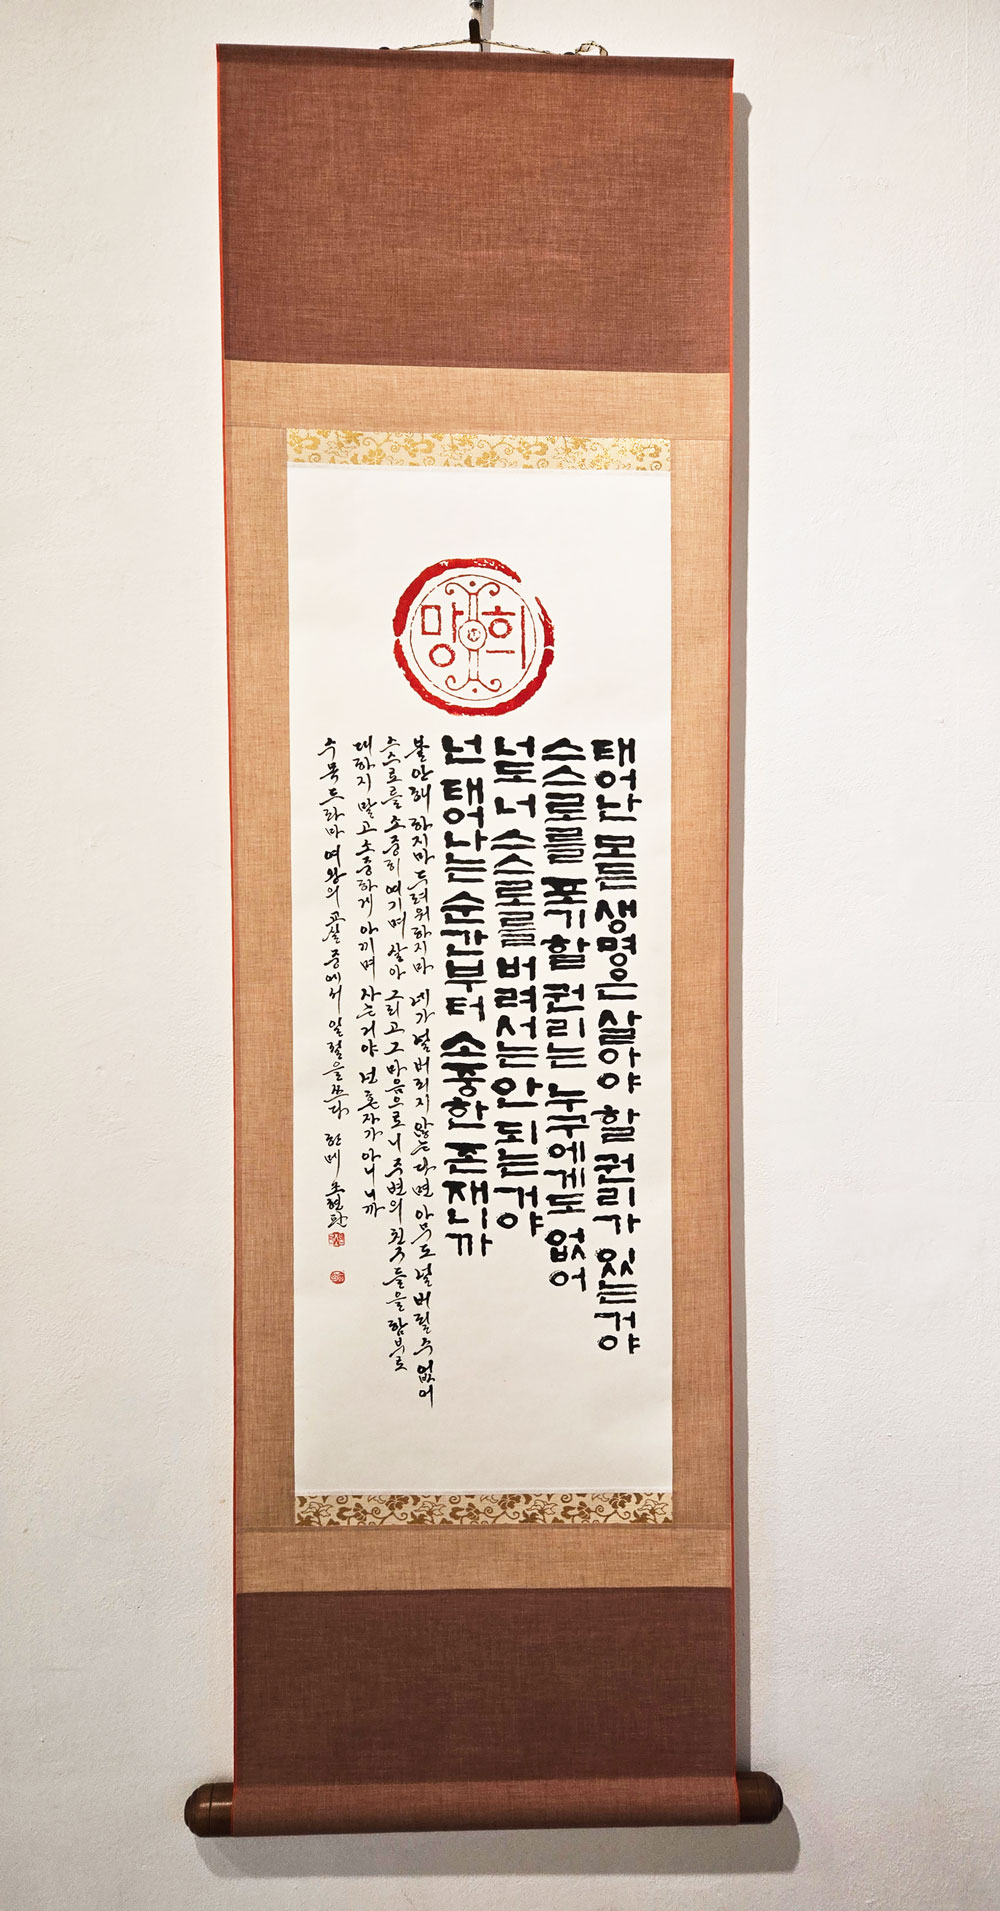 희망
태어난 모든 생명은 살아야 할 권리가 있는 거야
스스로를 포기할 권리는 누구에게도 없어
너도 너 스스로를 버려서는 안 되는 거야
넌 태어나는 순간부터 소중한 존재니까
불안해 하지마 두려워하지마 네가 널 버리지 않는다면 아무도 널 버릴 수 없어
스스로를 소중히 여기며 살아 그리고 그 마음으로 니 주변의 친구들을 함부로
대하지 말고 소중하게 아끼며 사는거야 넌 혼자가 아니니까
수목드라마 여왕의 교실 중에서 일절을 쓰다 한메 조현판